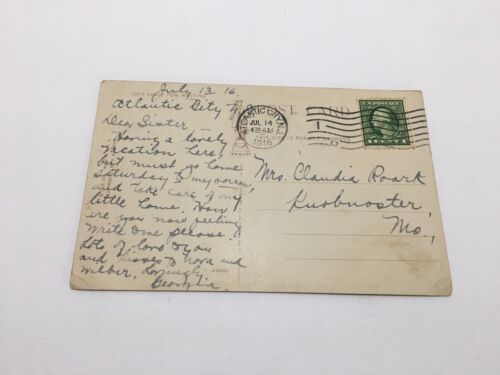 July 13 16.
THIS SPACE FOR WRITING
Atlantic City NJ
Dear Sister
Having a lovely
vacation here,
but must go home
Saturday to my
and take care of my
little home. How
are you now feeling
Write me please.
Lots of love to you
and kisses to Nora and
Wilbur, Lovingly
Georgia.
POST CARD
ATLANTIC CITY, N.J.
JUL 14
4 30 AM
1916
U.S. POSTAGE
Mrs. Claudia Roark
Knobnoster,
Mo.,